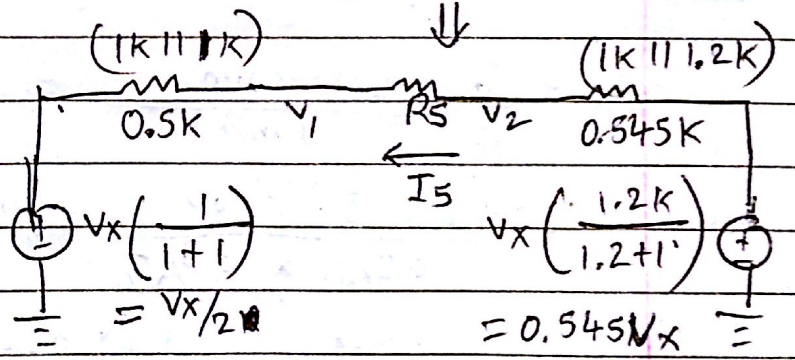 (1K || 1K) (1K || 1.2K)
0.5K V1 R5 V2 0.545K
I5
Vx(1/(1+1)) Vx(1.2K/(1.2+1))
= Vx/2 = 0.545Vx